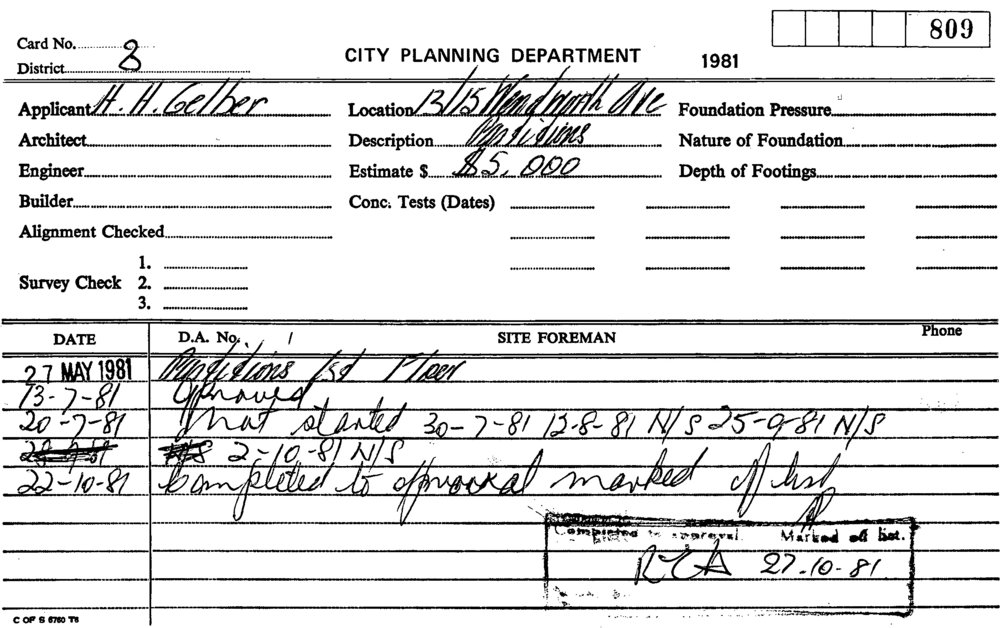 809
Card No. 8
CITY PLANNING DEPARTMENT 1981
District
Applicant H. H. Gelber Location 13/15 Wentworth Ave Foundation Pressure
Architect Description Partitions Nature of Foundation
Engineer Estimate $ $5,000 Depth of Footings
Builder Conc. Tests (Dates)
Alignment Checked
1.
Survey Check 2.
3.
DATE D.A. No. SITE FOREMAN Phone
27 MAY 1981 Partitions 1st Floor
13-7-81 Approved
20-7-81 not started 30-7-81 12-8-81 N/S 25-9-81 N/S
2-10-81 N/S
22-10-81 Completed to approval marked of list
Completed to approval. Marked off list.
27-10-81
C OF S 6760 T8